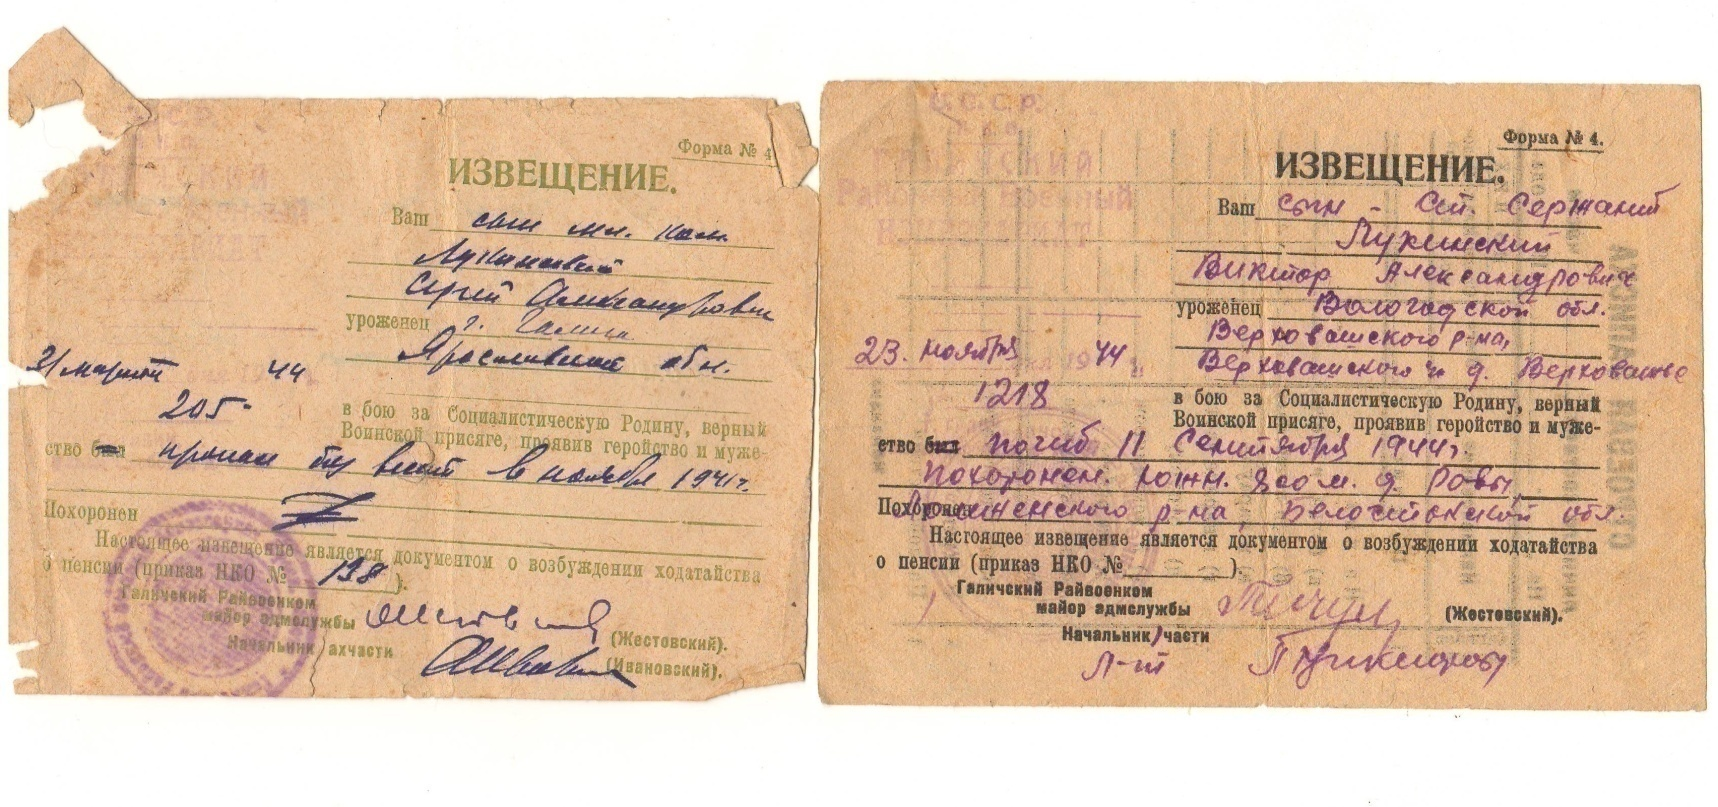 С.С.Р.
Форма № 4
ИЗВЕЩЕНИЕ.
Ваш сын мл. ком.
Лукинский
Сергей Александрович
уроженец г. Галич
Ярославской обл.
31 марта 44
205
в бою за Социалистическую Родину, верный
Воинской присяге, проявив геройство и муже-
ство был пропал без вести в ноябре 1941 г.
Похоронен
Настоящее извещение является документом о возбуждении ходатайства
о пенсии (приказ НКО № 138).
Галичский Райвоенком
майор адмслужбы (Жестовский).
Начальник ахчасти (Ивановский).
С.С.С.Р.
Н.К.О.
ГАЛИЧСКИЙ
Районный Военный
КОМИССАРИАТ
Форма № 4.
ИЗВЕЩЕНИЕ.
Ваш сын - Ст. Сержант
Лукинский
Виктор Александрович
уроженец Вологодской обл.
Верховажского р-на,
Верховажского д. Верховажье
23. ноября 1944 г.
1218
в бою за Социалистическую Родину, верный
Воинской присяге, проявив геройство и муже-
ство был погиб 11 Сентября 1944 г.
похоронен. южн. 800 м. д. Ровы
Похоронен р-на, Белостокской обл.
Настоящее извещение является документом о возбуждении ходатайства
о пенсии (приказ НКО № ).
Галичский Райвоенком
майор адмслужбы (Жестовский).
Начальник части
Л-т